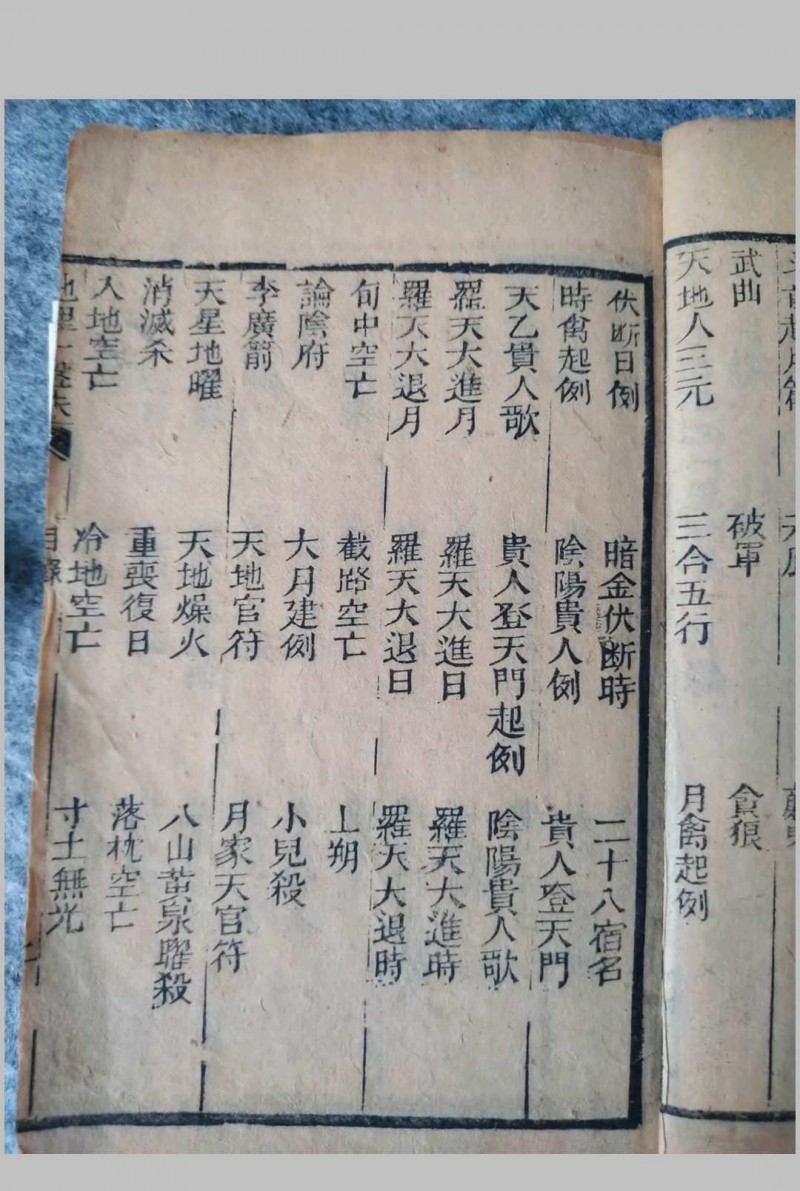 天地人三元 三合五行 月禽起例
武曲 破軍 貪狼
伏断日例 暗金伏断時 二十八宿名
時禽起例 陰陽貴人例 貴人登天門
天乙貴人歌 貴人登天門起例 陰陽貴人歌
羅天大進月 羅天大進日 羅天大進時
羅天大退月 羅天大退日 羅天大退時
旬中空亡 截路空亡 上朔
論陰府 大月建例 小兒殺
李廣箭 天地官符 月家天官符
天星地曜 天地燥火 八山黄泉曜殺
消滅杀 重喪復日 落枕空亡
入地空亡 冷地空亡 寸土無光
目錄